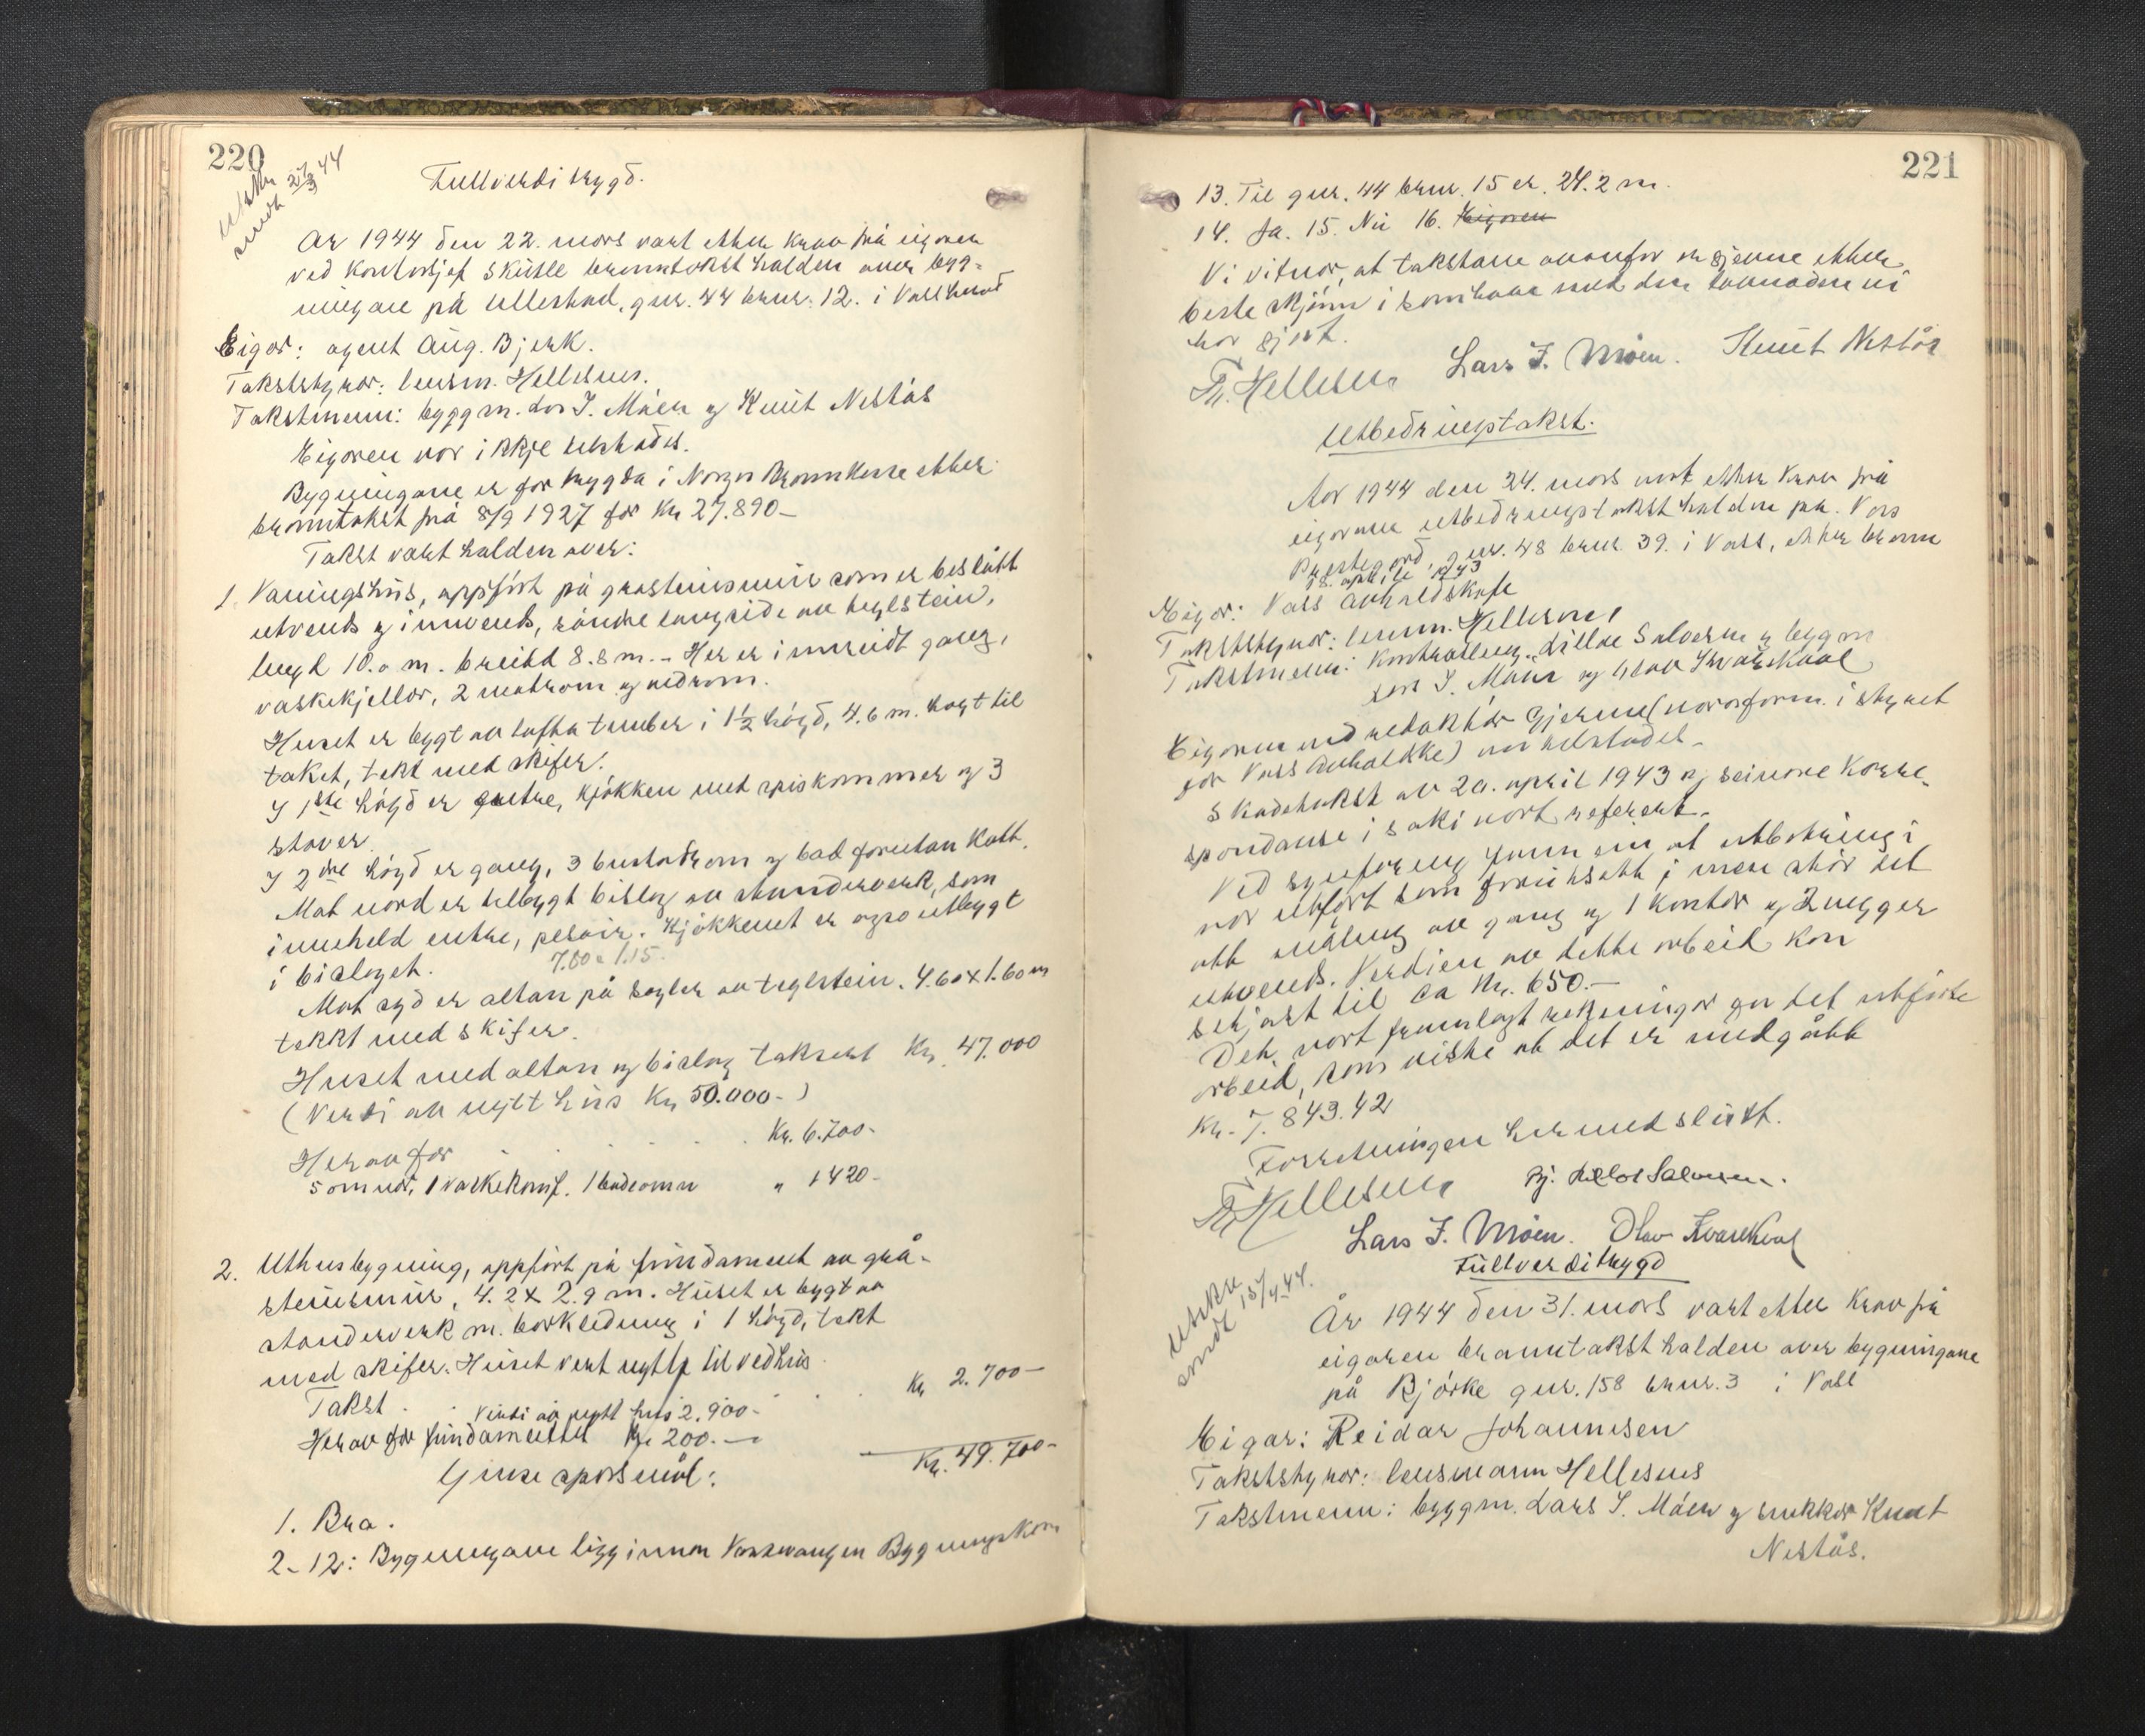 220
Utskr.
sendt 27/3 44
Fullverdi trygd.
År 1944 den 22. mars vart etter krav frå eigaren
ved kontorsjef Skutle branntakst halden over byg-
ningane på Ullestad, gnr. 44 bnr. 12. i Voss herad
Eigar: agent Aug. Bjerk.
Takststyrar: lensm. Hellesnes.
Takstmenn: byggm. Lars J. Móen og Knut Nestås
Eigaren var ikkje tilstades.
Bygningane er for trygda i Norges Brannkasse etter
branntakst frå 8/9 1927 for Kr 27.890-
Takst vart halden over:
1. Vaningshus, oppført på grasteinsmur som er beslått
utvends og innvends, søndre langside av teglstein,
lengd 10.0 m. breidd 8.8 m. - Her er innreidt gang,
vaskekjellar, 2 matrom og vedrom.
Huset er bygt av lafta tømber i 1½ høgd, 4.6 m. høgt til
taket, tekt med skifer.
I 1ste høgd er entre, kjøkken med spiskammer og 3
stover.
I 2dre høgd er gang, 3 bustadrom og bad forutan kott.
Mot nord er tilbygt bislag av standerverk, som
inneheld entre, . Kjøkkenet er også utbygt
i bislaget. 7.00 x 1.15.
Mot syd er altan på søyler av teglstein. 4.60 x 1.60 m
tekkt med skifer.
Huset med altan og bislag taksert Kr. 47.000
(Verdi av nytt hus Kr 50.000-)
Herav for . . . . Kr. 6.700-
5 omnar, 1 vaskekomf. 1 badeomn " 1420-
2. Uthusbygning, oppført på fundament av grå-
steinsmur, 4.2 x 2.9 m. Huset er bygt av
standerverk m. bordkledning i 1 høgd, tekt
med skifer. Huset vert nytta til vedhus
Takst . . . . Kr 2.700-
Verdi av nytt hus 2.900-
Herav for fundamentet Kr 200.-
Kr. 49.700-
Ymse spørsmål:
1. Bra.
2-12: Bygningane ligg innom Vossevangen Bygningskom
221
13. Til gnr. 44 bnr. 15 er. 24.2 m.
14. Ja. 15. Nei 16. Eigaren
Vi vitnar, at takstane ovanfor er gjevne etter
beste skjønn i samhøve med den lovnaden vi
har gjevt.
Th. Hellesnes Lars J. Móen. Knut Nestås
Utbedringstakst.
Aar 1944 den 24. mars vart etter krav frå
eigarane utbedringstakst halden på Voss
Prestegard, gnr. 48 bnr. 39. i Voss, etter brann
18. april 1943
Eigar: Voss Avhaldskafe
Takststyrar: lensm. Hellesnes
Takstmenn: Kontrolling. Dillse Salvesen og byggm
Lars J. Móen og Olav Kvarekval
Eigaren ved redaktør Gjerme (varaform. i styret
for Voss avhaldske) var tilstades.
Skadetakst av 20. april 1943 og seinare korre-
spondanse i saki vart referert.
Ved synfaring fann ein at utbetring
var utført som forutsatt, men står det
att måling av gang og 1 kontor og 2 vegger
utvends. Verdien av dette arbeid kan
setjast til ca Kr. 650.-
Det vart framlagt rekningar for det utførte
arbeid, som viste at det er medgått
Kr. 7.843.42
Forretningen hermed slutt.
Th. Hellesnes Salvesen.
Lars J. Móen. Olav Kvarekval
Fullverditrygd
Utskr.
sendt 15/4 44.
År 1944 den 31. mars vart etter krav frå
eigaren branntakst halden over bygningane
på Bjørke gnr. 158 bnr. 3 i Voss
Eigar: Reidar Johannesen
Takststyrar: lensmann Hellesnes
Takstmenn: byggm. Lars J. Móen og snikkar Knut
Nestås.